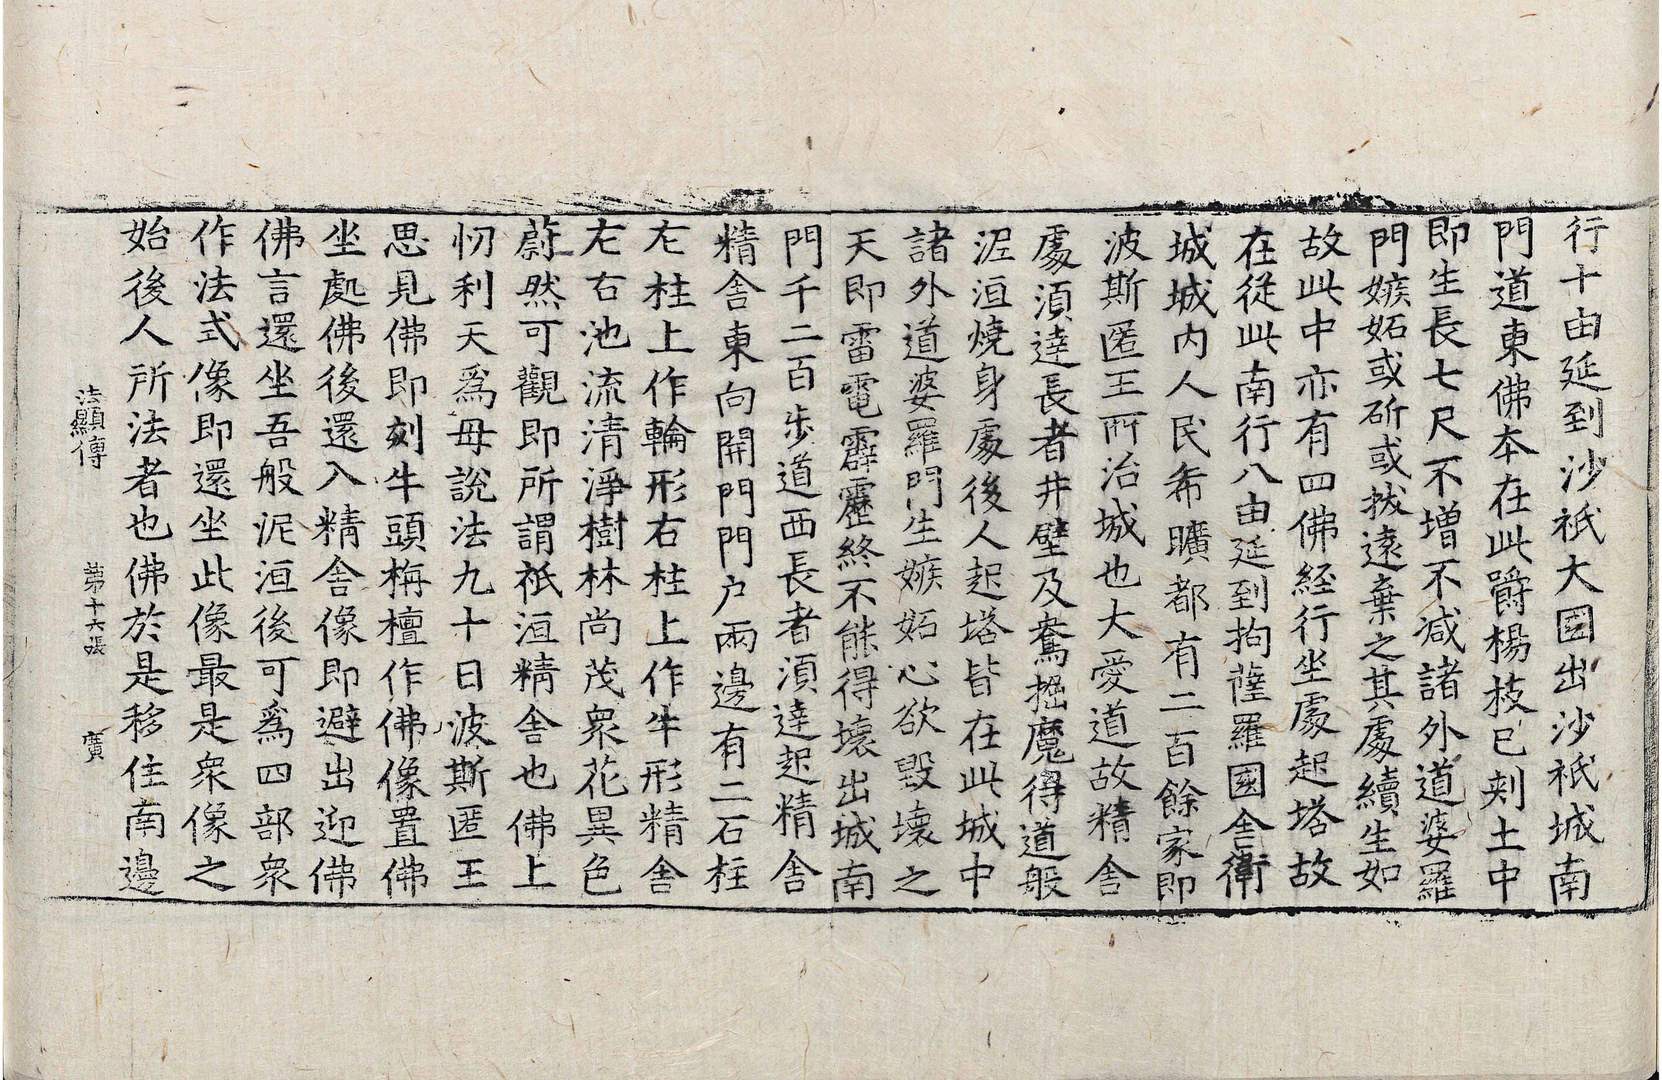 行十由延到沙祇大國出沙祇城南
門道東佛本在此嚼楊枝已刾土中
即生長七尺不增不減諸外道婆羅
門嫉妬或斫或拔遠棄之其處續生如
故此中亦有四佛経行坐處起塔故
在從此南行八由延到拘薩羅國舍衛
城城内人民希曠都有二百餘家即
波斯匿王所治城也大愛道故精舍
處湏達長者井壁及鴦掘魔得道般
泥洹燒身處後人起塔皆在此城中
諸外道婆羅門生嫉妬心欲毀壞之
天即雷電霹靂終不能得壞出城南
門千二百步道西長者湏達起精舍
精舍東向開門門户兩邊有二石柱
左柱上作輪形右柱上作牛形精舍
左右池流清淨樹林尚茂衆花異色
蔚然可觀即所謂祇洹精舍也佛上
忉利天爲母說法九十日波斯匿王
思見佛即刻牛頭栴檀作佛像置佛
坐處佛後還入精舍像即避出迎佛
佛言還坐吾般泥洹後可爲四部衆
作法式像即還坐此像最是衆像之
始後人所法者也佛於是移住南邊
法顯傳 第十六張 廣